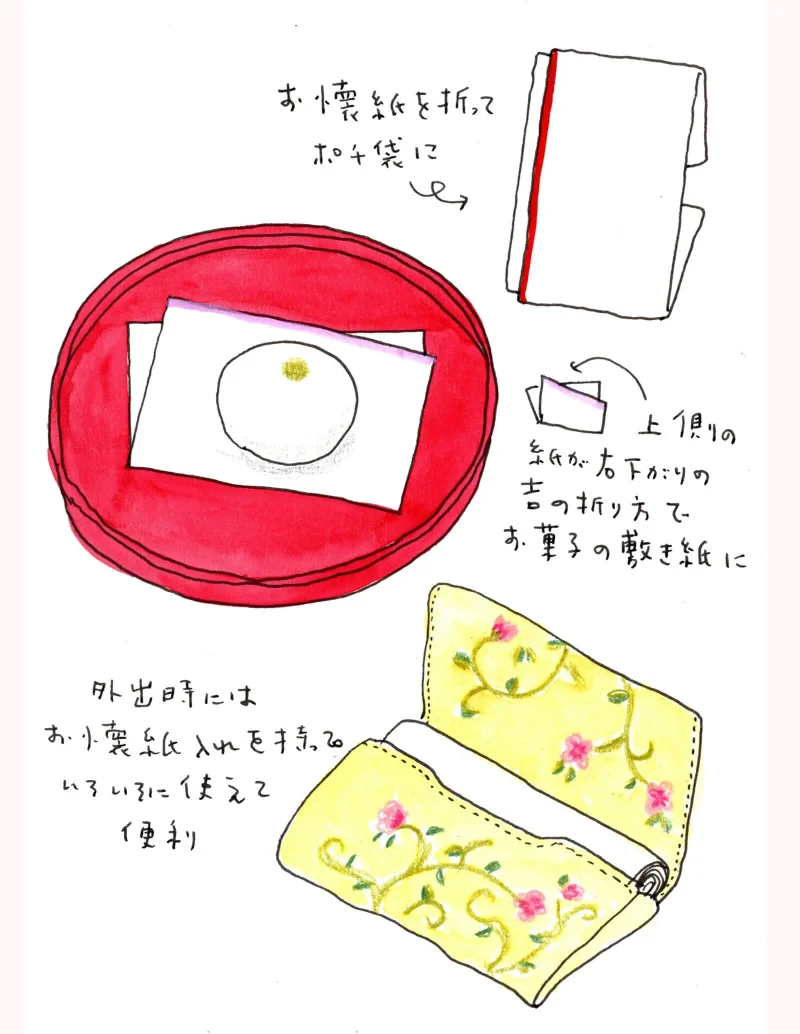 お懐紙を折って
ポチ袋に
上側の
紙が右下がりの
吉の折り方で
お菓子の敷き紙に
外出時には
お懐紙入れを持って
いろいろに使えて
便利